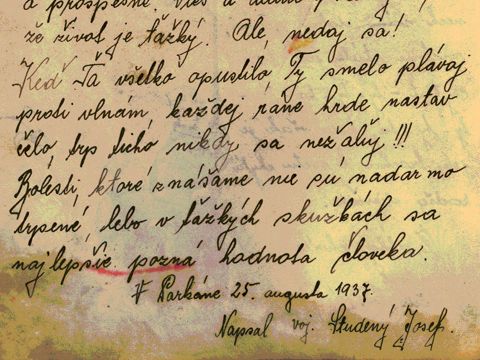 a prospešne. Vieš a
že život je ťažký. Ale, nedaj sa!
Keď Ťa všetko opustilo, Ty smelo plávaj
proti vlnám, každej rane hrde nastav
čelo, trp ticho nikdy sa nežaluj!!!
Bolesti, ktoré znášame nie sú nadarmo
trpené, lebo v ťažkých skúžkách sa
najlepšie pozná hodnota človeka.
V Parkáne 25. augusta 1937.
Napsal voj. Študený Josef.